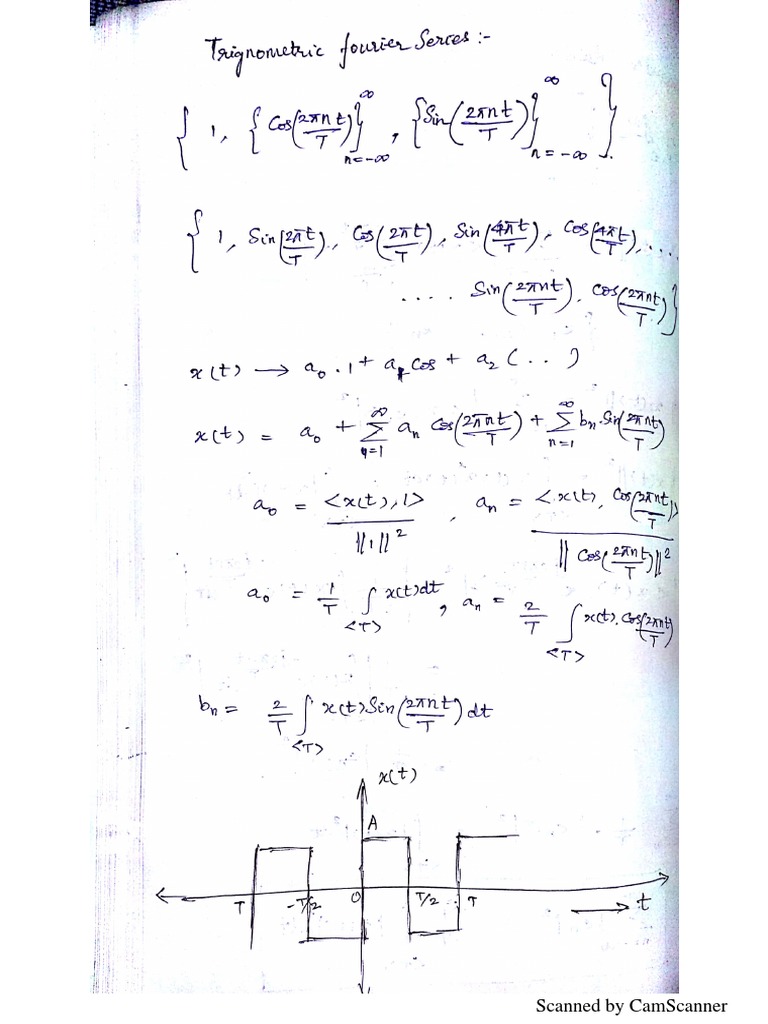 Trignometric fourier Series :-
{ 1, {Cos(2πnt/T)}_{n=-∞}^{∞}, {Sin(2πnt/T)}_{n=-∞}^{∞} }.
{ 1, Sin(2πt/T), Cos(2πt/T), Sin(4πt/T), Cos(4πt/T), ....
.... Sin(2πnt/T), Cos(2πnt/T) }
x(t) → a₀.1 + a₁ Cos + a₂ (..)
x(t) = a₀ + Σ_{n=1}^{∞} aₙ Cos(2πnt/T) + Σ_{n=1}^{∞} bₙ.Sin(2πnt/T)
a₀ = <x(t), 1> / ||1||², aₙ = <x(t), Cos(2πnt/T)> / ||Cos(2πnt/T)||²
a₀ = 1/T ∫_{<T>} x(t)dt, aₙ = 2/T ∫_{<T>} x(t).Cos(2πnt/T)
bₙ = 2/T ∫_{<T>} x(t)Sin(2πnt/T)dt
x(t)
A
T -T/2 0 T/2 T → t
Scanned by CamScanner